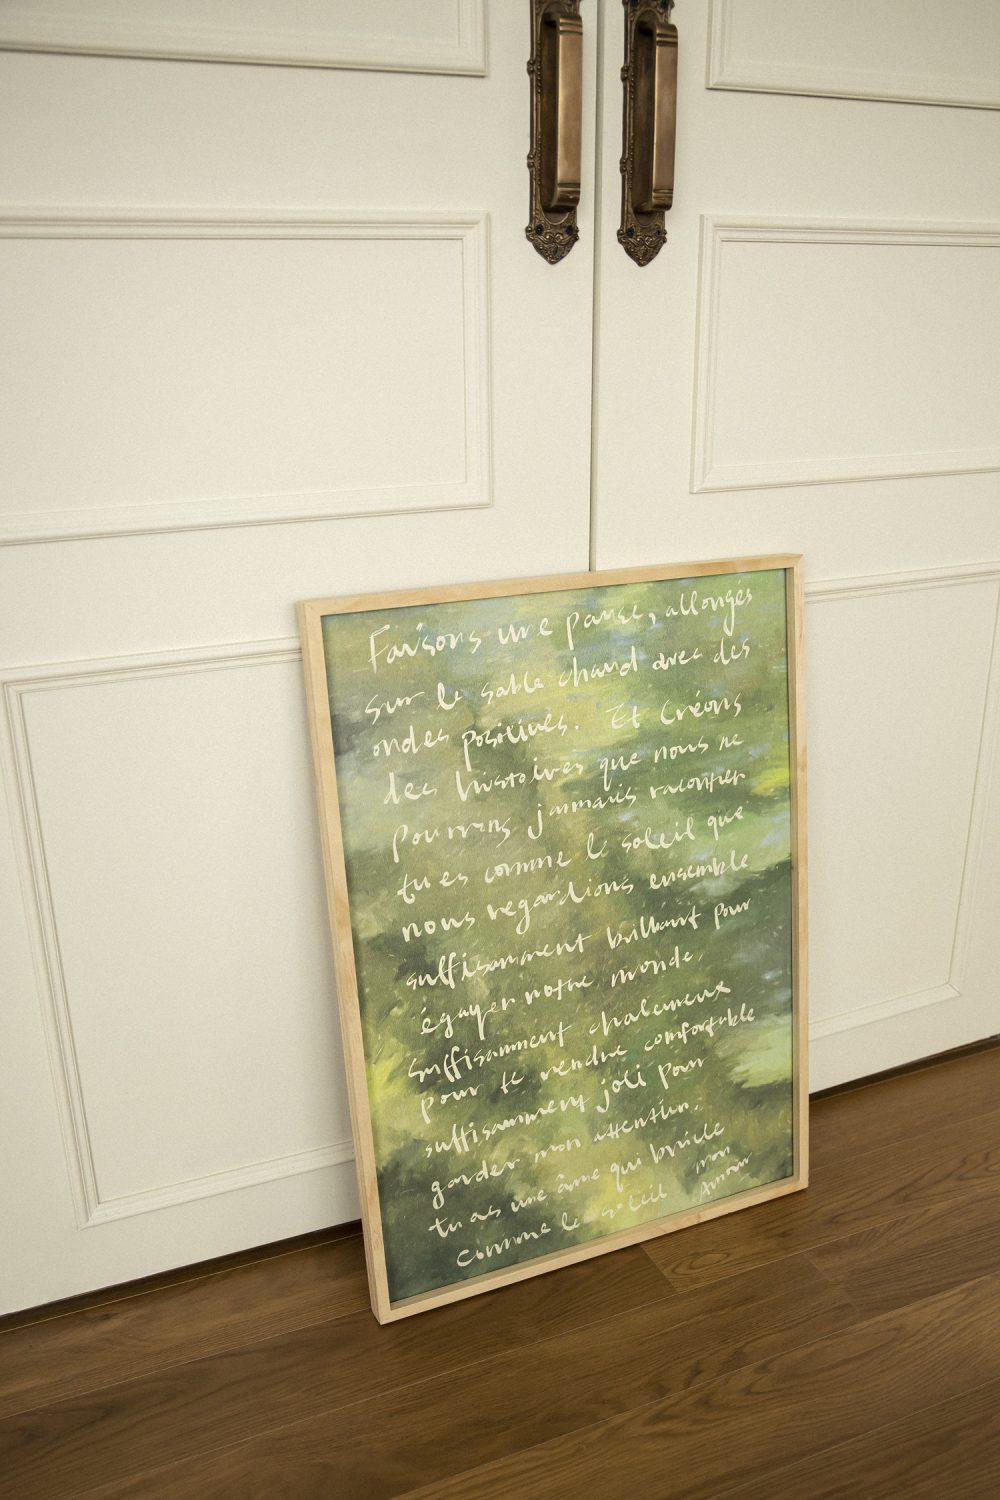 Faisons une pause, allongés
sur le sable chaud avec des
ondes positives. Et créons
des histoires que nous ne
pourrons jammais raconter
tu es comme le soleil que
nous regardions ensemble
suffisamment brillant pour
égayer notre monde.
suffisamment chaleureux
pour te rendre comfortable
suffisamment joli pour
garder mon attention.
tu as une âme qui brûle
comme le soleil mon
Amour